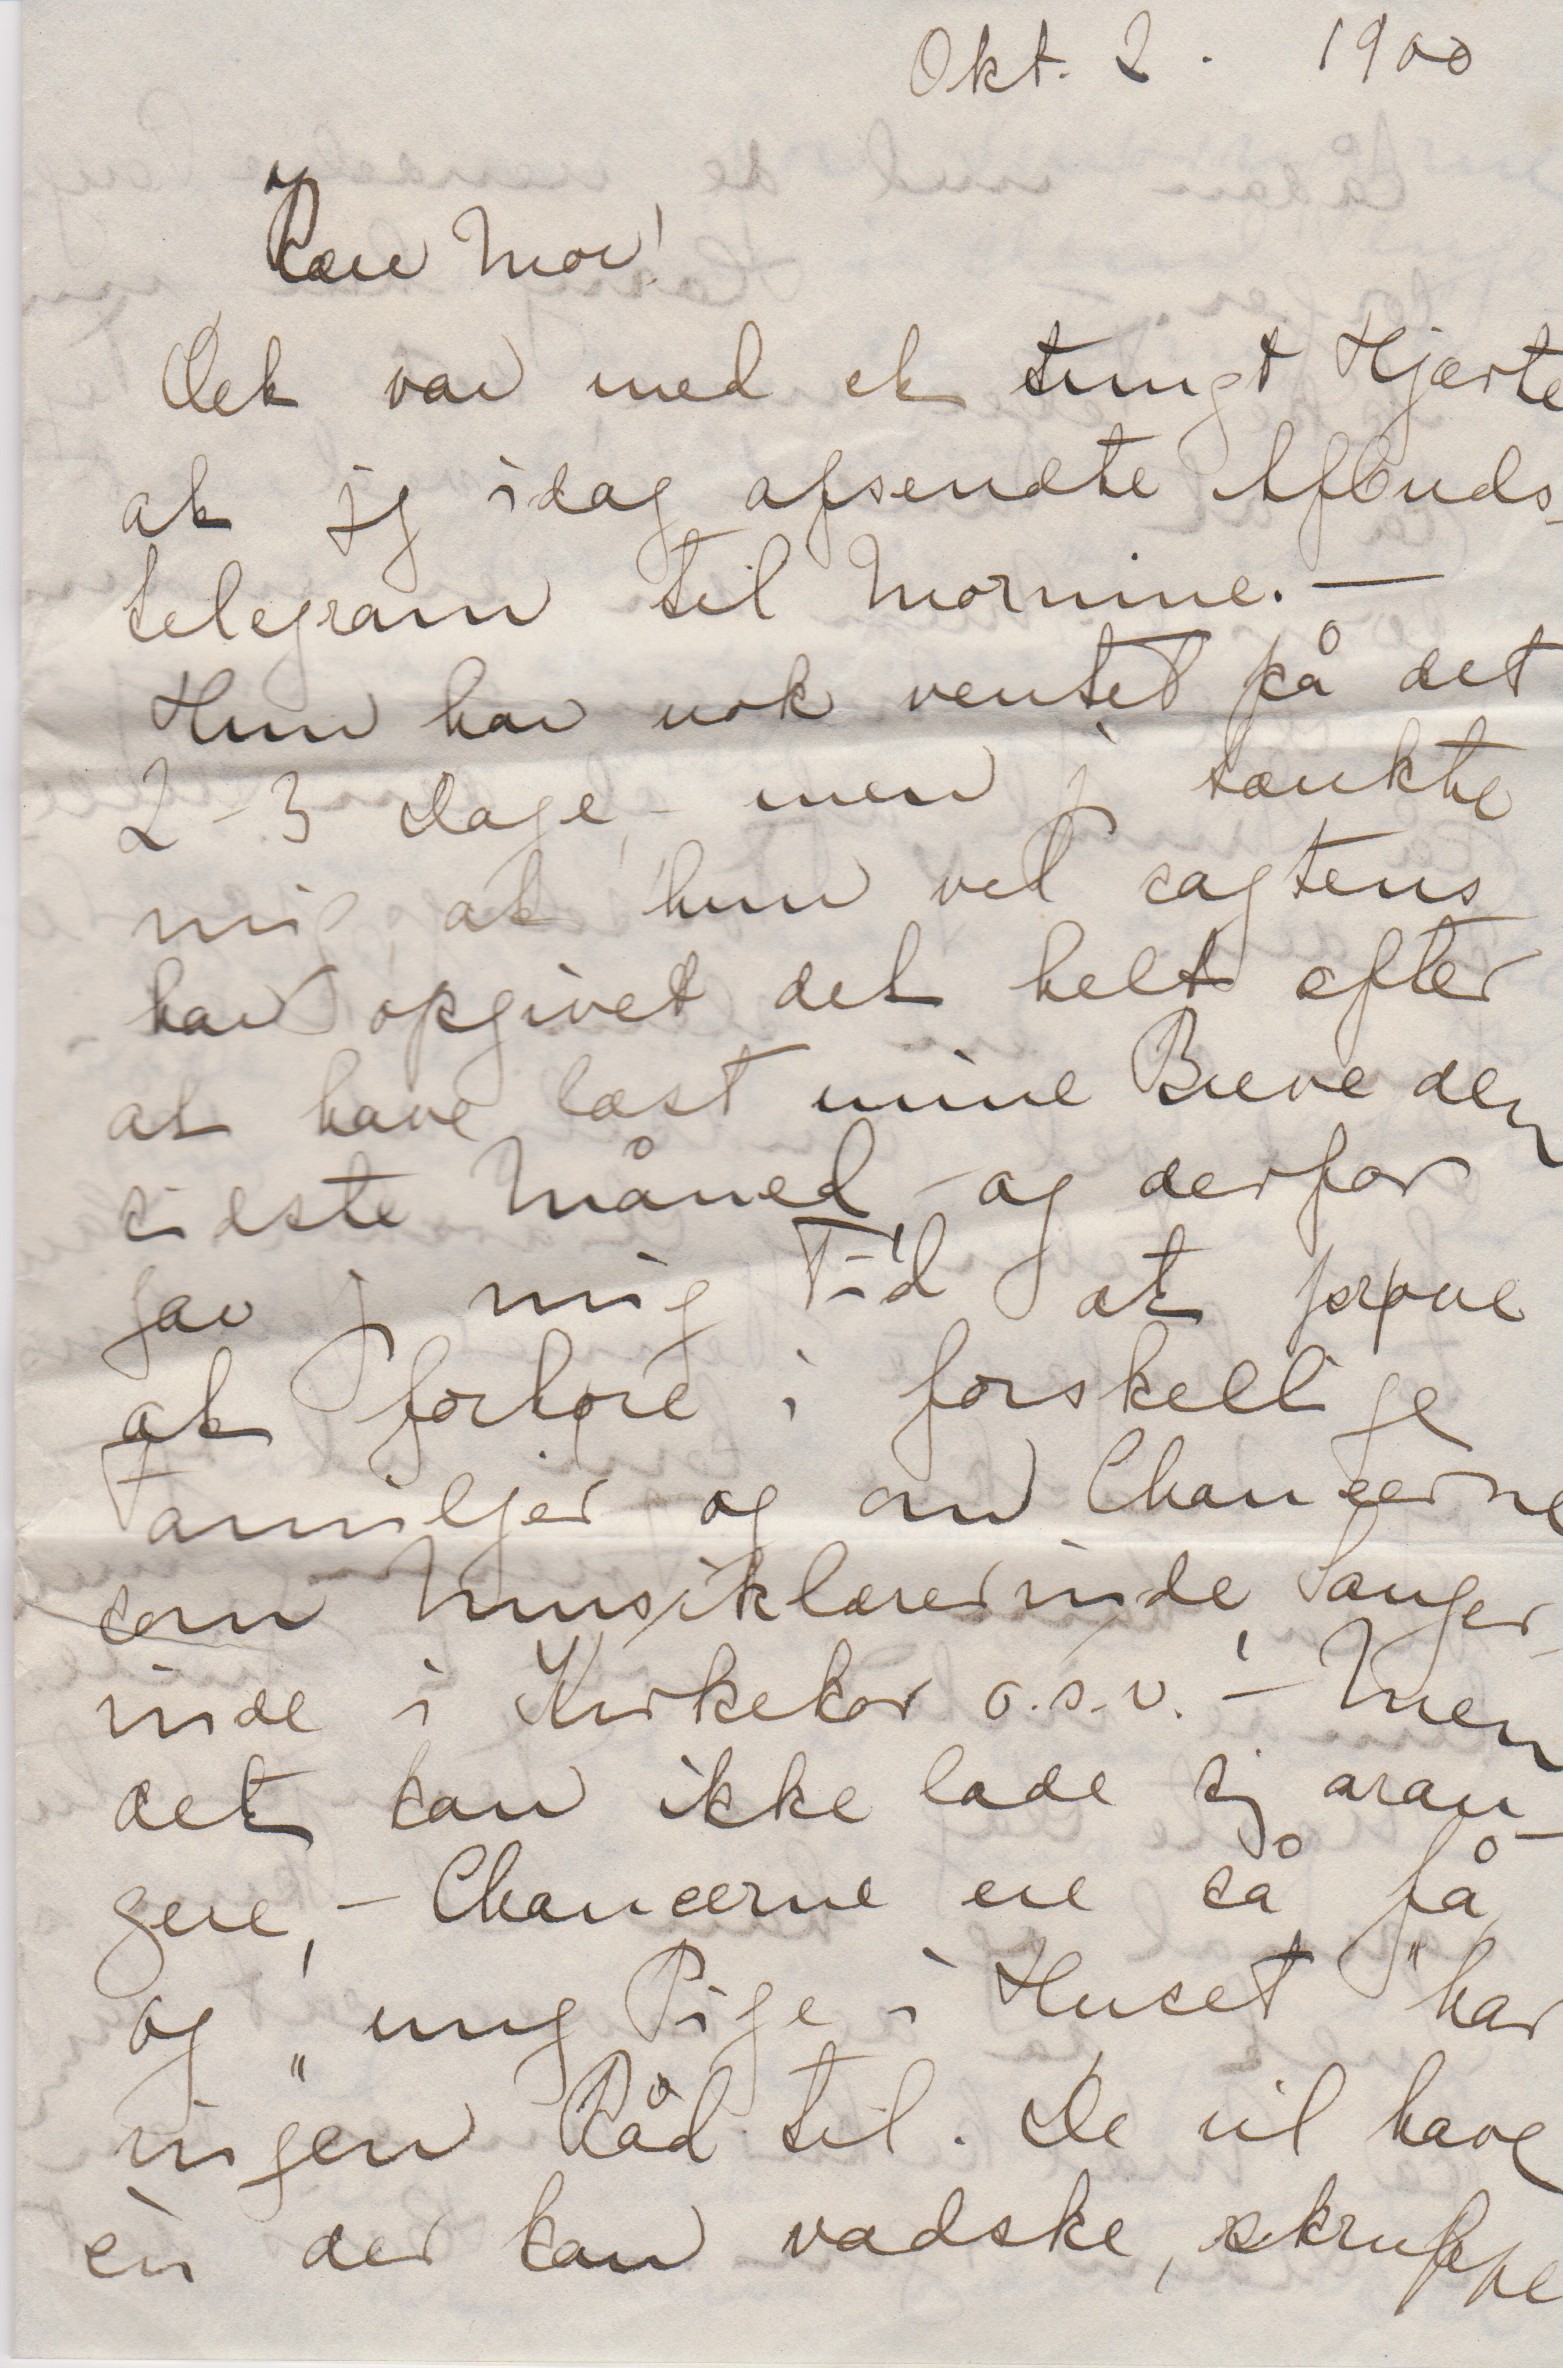 Okt. 2. 1900
Kære Mor!
Det var med et tungt Hjærte
at jeg idag afsendte Afbuds-
telegram til Mornine. —
Hun har nok ventet på det
2-3 Dage, - men j tænkte
mig, at hun vel sagtens
har opgivet det helt efter
at have læst mine Breve den
sidste Måned, - og derfor
gav j mig Tid at prøve
at forhøre i forskellige
Familjer og om Chancerne
som Musiklærerinde, Sanger-
inde i Kirkekor o.s.v.! - Men
det kan ikke lade sig aran-
gere, - Chancerne ere så få,
og „ung Pige i Huset" har
ingen Råd til. De vil have
èn der kan vadske, skruppe